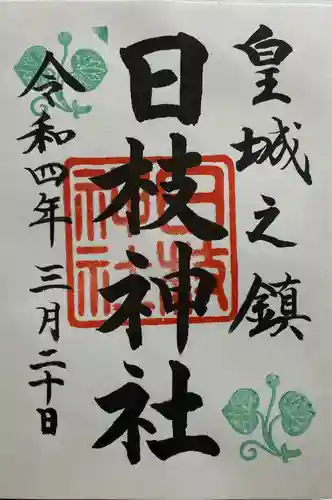 皇城之鎮
日枝神社
日枝
神社
令和四年三月二十日